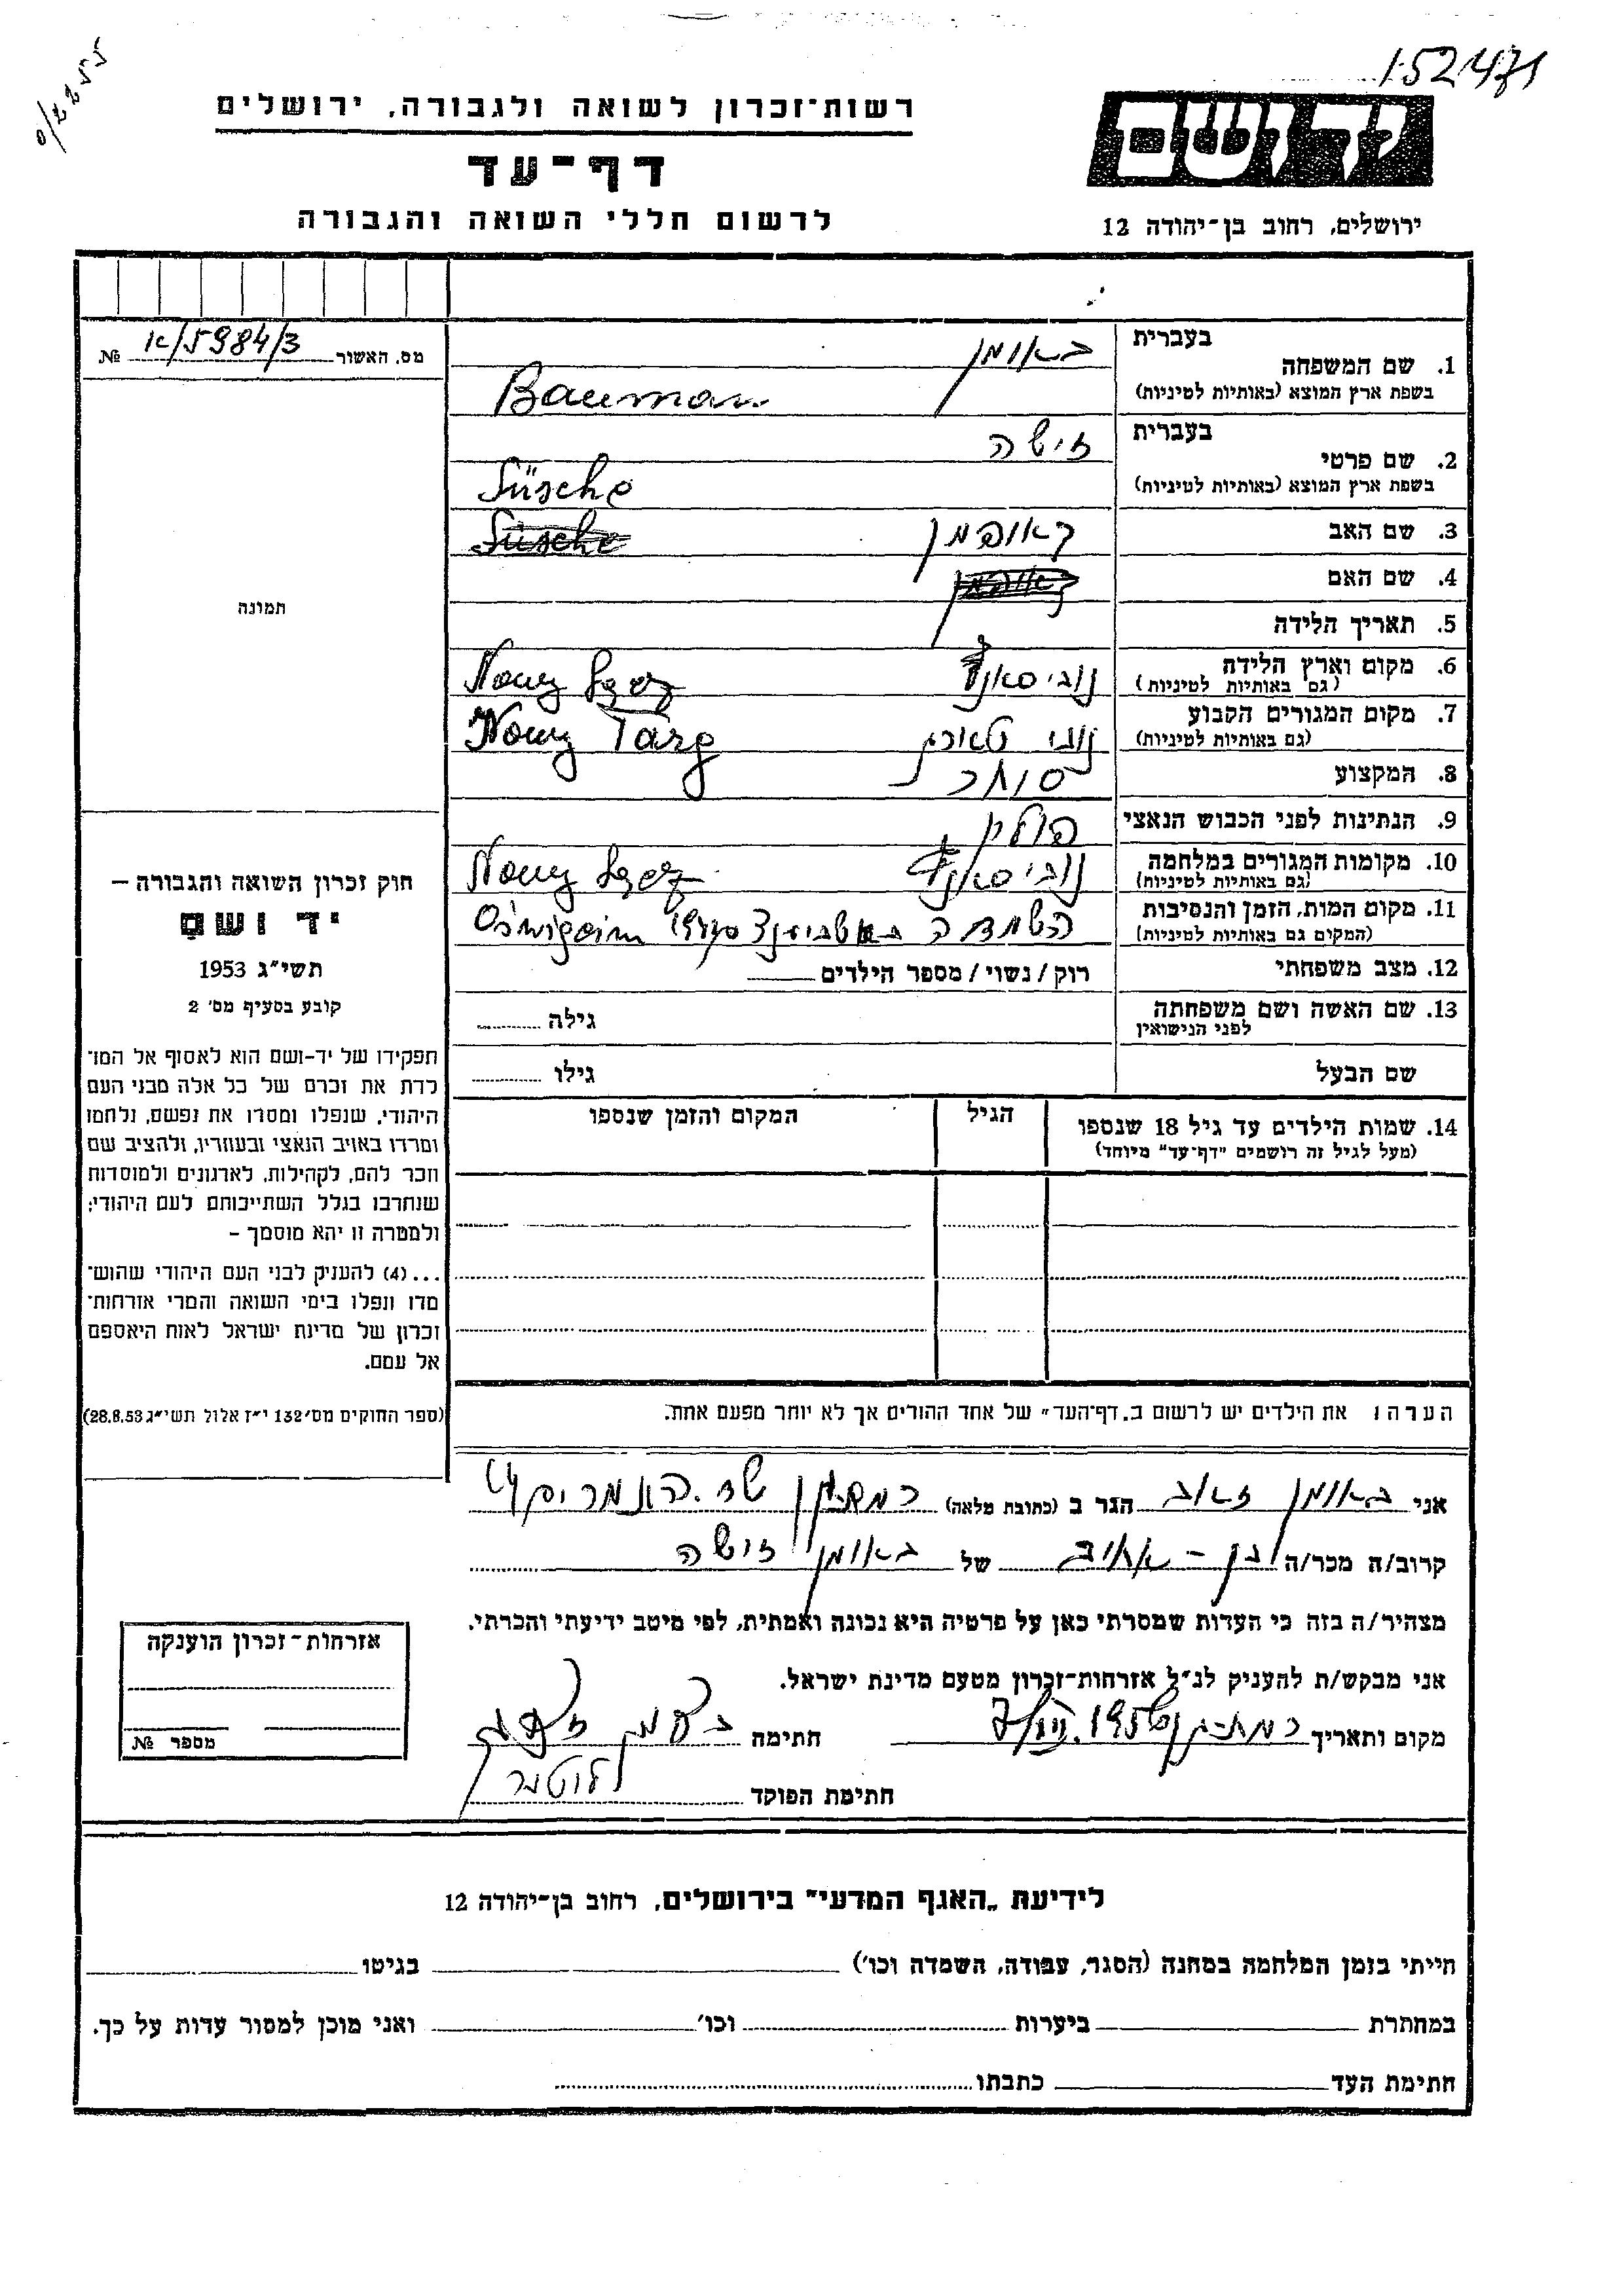 152471
רשות־זכרון לשואה ולגבורה, ירושלים
יד ושם
דף־עד
ירושלים, רחוב בן־יהודה 12
לרשום חללי השואה והגבורה
מס. האשור 5984/3 №
בעברית
1. שם המשפחה באומן
בשפת ארץ המוצא (באותיות לטיניות) Bauman
בעברית
2. שם פרטי זישה
בשפת ארץ המוצא (באותיות לטיניות) Süsche
3. שם האב קאופמן Süsche
4. שם האם
5. תאריך הלידה
6. מקום וארץ הלידה נובי סאנץ Nowy Sącz
(גם באותיות לטיניות)
7. מקום המגורים הקבוע נובי טארג Nowy Targ
(גם באותיות לטיניות)
8. המקצוע סוחר
9. הנתינות לפני הכבוש הנאצי פולין
10. מקומות המגורים במלחמה נובי סאנץ Nowy Sącz
(גם באותיות לטיניות)
11. מקום המות, הזמן והנסיבות השמדה Oświęcim
(המקום גם באותיות לטיניות)
12. מצב משפחתי רוק / נשוי / מספר הילדים
13. שם האשה ושם משפחתה גילה
לפני הנישואין
שם הבעל גילו
14. שמות הילדים עד גיל 18 שנספו הגיל המקום והזמן שנספו
(מעל לגיל זה רושמים "דף־עד" מיוחד)
הערה: את הילדים יש לרשום ב„דף־העד" של אחד ההורים אך לא יותר מפעם אחת.
תמונה
חוק זכרון השואה והגבורה –
יד ושם
תשי"ג 1953
קובע בסעיף מס׳ 2
תפקידו של יד-ושם הוא לאסוף אל המו־
לדת את זכרם של כל אלה מבני העם
היהודי, שנפלו ומסרו את נפשם, נלחמו
ומרדו באויב הנאצי ובעוזריו, ולהציב שם
וזכר להם, לקהילות, לארגונים ולמוסדות
שנחרבו בגלל השתייכותם לעם היהודי;
ולמטרה זו יהא מוסמך –
...(4) להעניק לבני העם היהודי שהוש־
מדו ונפלו בימי השואה והמרי אזרחות־
זכרון של מדינת ישראל לאות היאספם
אל עמם.
(ספר החוקים מס׳ 132 י"ז אלול תשי"ג 28.8.53)
אני באומן זאב הגר ב (כתובת מלאה) רמת-גן
קרוב/ה מכר/ה בן-אחיו של באומן זישה
מצהיר/ה בזה כי העדות שמסרתי כאן על פרטיה היא נכונה ואמתית, לפי מיטב ידיעתי והכרתי.
אני מבקש/ת להעניק לנ"ל אזרחות־זכרון מטעם מדינת ישראל.
מקום ותאריך רמת-גן חתימה
חתימת הפוקד
אזרחות־זכרון הוענקה
מספר №
לידיעת „האגף המדעי" בירושלים, רחוב בן־יהודה 12
הייתי בזמן המלחמה במחנה (הסגר, עבודה, השמדה וכו׳) בגיטו
במחתרת ביערות וכו׳ ואני מוכן למסור עדות על כך.
חתימת העד כתבתו